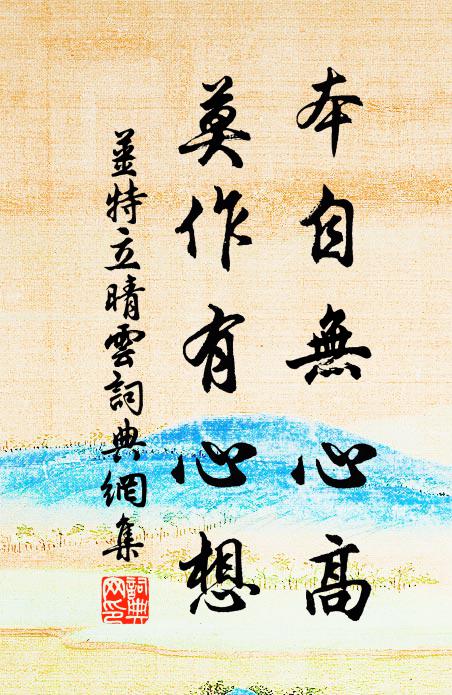 本自無心高
莫作有心想
姜特立晴雲詞典網集
詞典